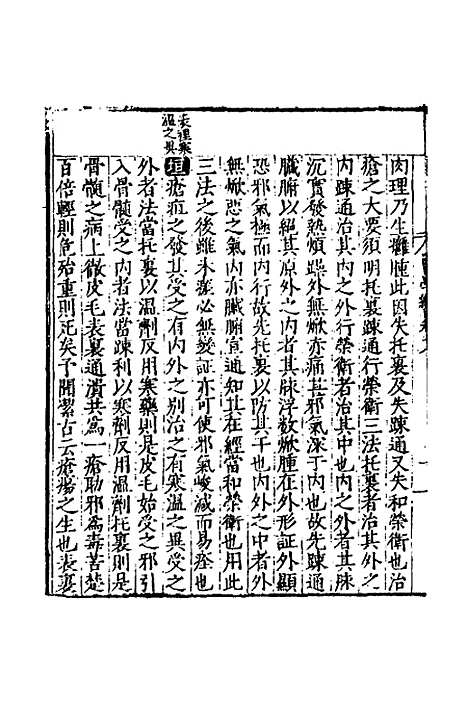 肉理乃生癰腫此因失托裏及失踈通又失和榮衛也治
瘡之大要須明托裏踈通行榮衛三法托裏者治其外之
内踈通治其内之外行榮衛者治其中也内之外者其脉
沉實發熱煩躁外無焮赤痛甚邪氣深于内也故先踈通
臓腑以絕其原外之内者其脉浮數焮腫在外形証外顯
恐邪氣極而内行故先托裏以防其干也内外之中者外
無焮惡之氣内亦臓腑宣通知其在經當和榮衛也用此
三法之後雖未瘥必無變証亦可使邪氣峻減而易痊也
表裡寒
温之異
垣瘡疽之發其受之有内外之别治之有寒温之異受之
外者法當托裏以温劑反用寒藥則是皮毛始受之邪引
入骨髓受之内者法當踈利以寒劑反用温劑托裏則是
骨髓之病上徹皮毛表裏通潰共爲一瘡助邪爲毒苦楚
百倍輕則危殆重則死矣予聞潔古云瘡瘍之生也表裏